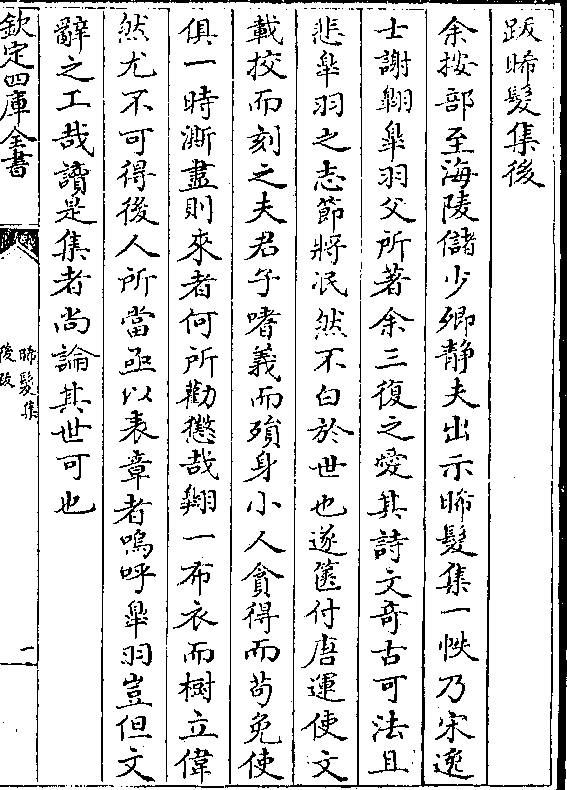 跋晞髮集後
余按部至海陵儲少卿靜夫出示晞髮集一帙乃宋逸
士謝翺臯羽父所著余三復之愛其詩文奇古可法且
悲臯羽之志節將泯然不白於世也遂篋付唐運使文
載挍而刻之夫君子嗜義而殞身小人貪得而茍免使
俱一時漸盡則來者何所勸懲哉翺一布衣而樹立偉
然尤不可得後人所當亟以表章者嗚呼臯羽豈但文
辭之工哉讀是集者尚論其世可也
欽定四庫全書
晞髮集
後跋
二